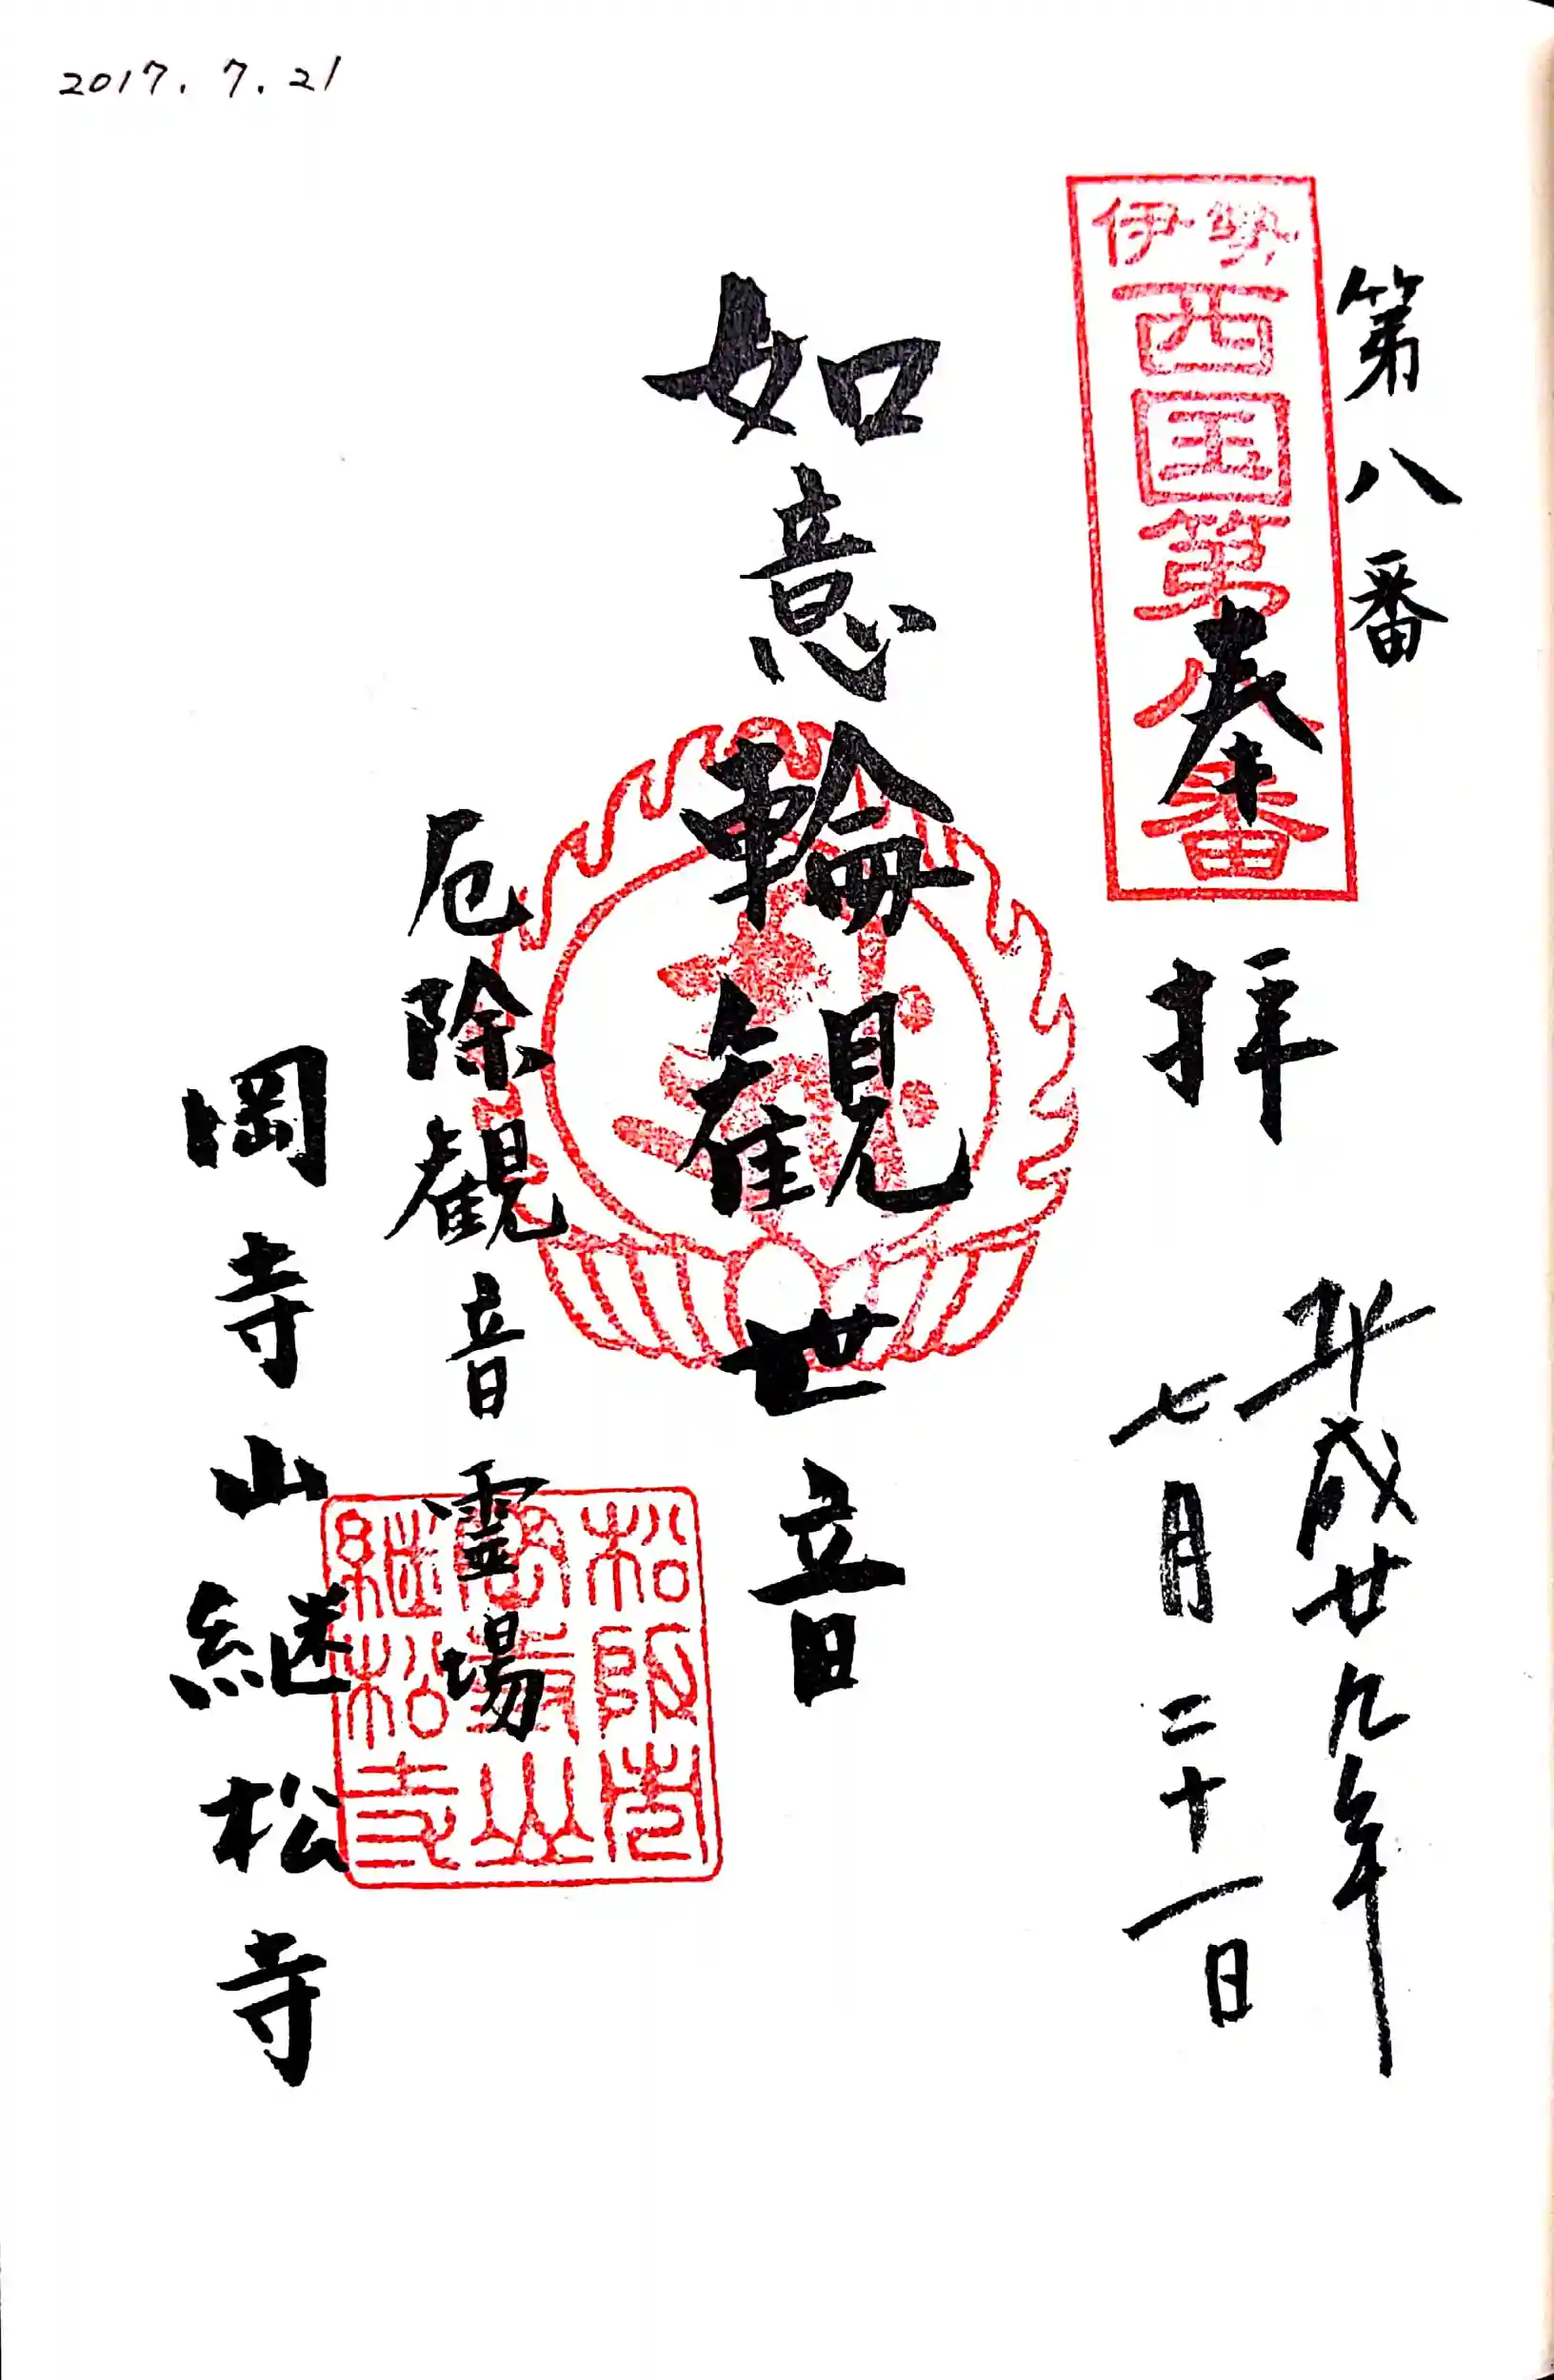 2017.7.21
第八番
平成廿九年
七月二十一日
伊勢
西国第八番
奉拝
如意輪観世音
厄除観音霊場
岡寺山継松寺
松阪市
継松寺